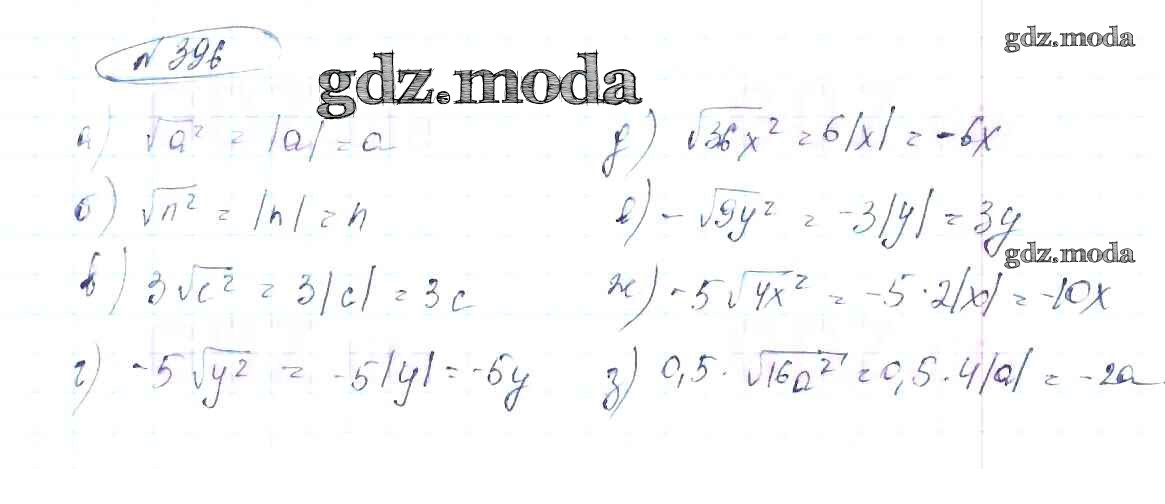 № 396
gdz.moda
gdz.moda
а) √a² = |a| = a
б) √n² = |n| = n
в) 3√c² = 3|c| = 3c
г) -5√y² = -5|y| = -5y
д) √36x² = 6|x| = -6x
е) -√9y² = -3|y| = 3y
gdz.moda
ж) -5√4x² = -5·2|x| = -10x
з) 0,5·√16a² = 0,5·4|a| = -2a